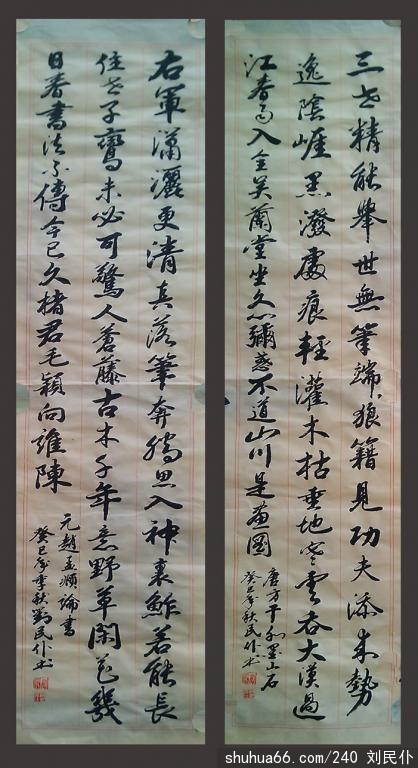 三世精能舉世無筆端狼籍見功夫添来勢
逸陰崖黑潑處痕輕灌木枯垂地寒雲吞大漠過
江春雨入全吴蘭堂坐久心彌惑不道山川是畫圖
唐方干水墨山石
癸巳年秋民仆书
右軍瀟灑更清真落筆奔騰思入神裹鮓若能長
住世子鸞未必可驚人蒼藤古木千年意野草閑花幾
日春書法不傳今已久楮君毛穎向誰陳
元趙孟頫論書
癸巳年秋劉民仆书
shuhua66.com/240 刘民仆